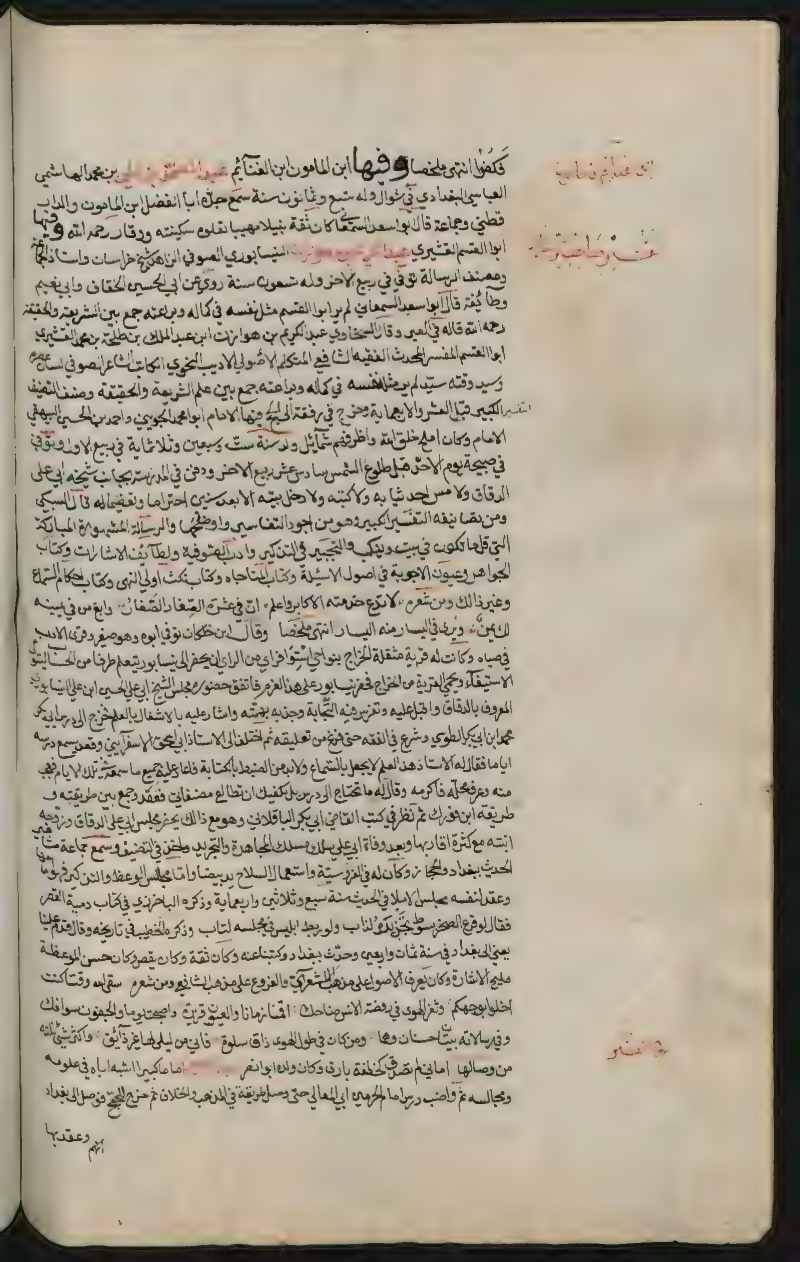 فكفوا انتهى ملخصا وفيها ابن المامون ابن الغنايم عبد الصمد بن علي بن محمد الهاشمي
العباسي البغدادي في شوال وله تسع وثمانون سنة سمع جده ابا الفضل ابن المامون والدار
قطني وجماعة قال ابو اسعد السمعاني كان ثقة نبيلا مهيبا تعلوه سكينة ووقار رحمه الله وفيها
ابو القسم القشيري عبد الكريم بن هوازن النيسابوري الصوفي الزاهد شيخ خراسان واستاذ الجماعة
ومصنف الرسالة توفي في ربيع الاخر وله تسعون سنة روى عن ابي الحسين الخفاف وابي نعيم
وطائفة قال ابو اسعد السمعاني لم ير ابو القسم مثل نفسه في كماله وبراعته جمع بين الشريعة والحقيقة
رحمه الله قاله في العبر وقال السخاوي عبد الكريم بن هوازن ابن عبد الملك بن طلحة بن محمد القشيري
ابو القسم المفسر المحدث الفقيه الشافعي المتكلم الاصولي الاديب النحوي الكاتب الشاعر الصوفي لسان عصره
وسيد وقته سيد لم ير مثل نفسه في كماله وبراعته جمع بين علم الشريعة والحقيقة وصنف التفسير
الكبير قبل العشر واربعماية وخرج في رفقة الى الحج فيها الامام ابو محمد الجويني واحمد بن الحسين البيهقي
الامام وكان املح خلق الله واظرفهم شمائل ولد سنة ست وسبعين وثلاثماية في ربيع الاول وتوفي
في صبيحة يوم الاحد قبل طلوع الشمس سادس عشر ربيع الاخر ودفن في المدرسة بجانب شيخه ابي على
الدقاق ولا مس احد ثيابه ولا كتبه ولا دخل بيته الا بعد سنين احتراما وتعظيما له قال السبكي
ومن تصانيفه التفسير الكبير وهو من اجود التفاسير واوضحها والرسالة المشهورة المباركة
التي قلما تكون في بيت وينكب والتحبير في التذكير وادب الصوفية ولطائف الاشارات وكتاب
الجواهر وعيون الاجوبة في اصول الاسئلة وكتاب المناجاه وكتاب نكت اولي النهى وكتاب احكام السماع
وغير ذالك ومن شعره لا تدع خدمة الاكابر واعلم ان في عشرة الصغار الصغار وابغ من في يمينه
لك يمن ويرى في اليسار منه اليسار انتهى ملخصا وقال ابن خلكان توفي ابوه وهو صغير وقرى الادب
في صباه وكانت له قرية مثقلة الخراج بنواحي استوا فراى من الراى ان يحضر الى نيسابور يتعلم طرفا من الحساب ليتولى
الاستيفاء ويحمى القرية من الخراج فحضر نيسابور على هذا العزم فاتفق حضوره مجلس الشيخ ابي علي الحسن ابن علي النيسابوري
المعروف بالدقاق واقبل عليه وتفرس فيه النجابة وجذبه بهمته واشار عليه بالاشتغال بالعلم فخرج الى درس ابي بكر
محمد ابن ابي بكر الطوسي وشرع في الفقه حتى فرغ من تعليقه ثم اختلف الى الاستاذ ابي اسحق الاسفرايني وقعد يسمع درسه
اياما فقال له الاستاذ هذا العلم لا يحصل بالسماع ولابد من الضبط بالكتابة فاعاد عليه جميع ما سمعه في تلك الايام فعجب
منه وعرف محله فاكرمه وقال له ما تحتاج الى درس بل يكفيك ان تطالع مصنفاتي فقعد وجمع بين طريقته و
طريقة ابن فورك ثم نظر في كتب القاضي ابي بكر الباقلاني وهو مع ذالك يحضر مجلس ابي على الدقاق وزوجه
ابنته مع كثرة اقاربها وبعد وفاة ابي على سلك مسلك المجاهدة والتجريد واخذ في التصنيف وسمع جماعة مشاهير
الحديث ببغداد والحجاز وكان له في الفروسية واستعمال السلاح يد بيضا واما مجلس الوعظ والتذكير فهو امامها
وعقد لنفسه مجلس الاملا في الحديث سنة سبع وثلاثين واربعماية وذكره الباخرزي في كتاب دمية القصر
فقال لو قرع الصخر بسوط تحذيره لذاب ولو ربط ابليس في مجلسه لتاب وذكره الخطيب في تاريخه وقال قدم علينا
يعني الى بغداد في سنة ثمان واربعين وحدث ببغداد وكتبنا عنه وكان ثقة وكان يقص وكان حسن الموعظة
مليح الاشارة وكان يعرف الاصول على مذهب الاشعري والفروع على مذهب الشافعي ومن شعره سقى الله وقتا كنت
اخلو بوجهكم وثغر الهوى في روضة الانس ضاحك اقمنا زمانا والعيون قريرة واصبحت يوما والجفون سوافك
وفي رسالته بيتان حسنان وهما ومن كان في طول الهوى ذاق سلوة فاني من ليلى لها غير ذائق واكثر شي نلته
من وصالها اماني لم تصدق كخطفة بارق وكان ولده ابو نصر اماما كبيرا اشبه اباه في علومه
ومجالسه ثم واضب درس امام الحرمين ابي المعالي حتى وصل طريقة في المذهب والخلاف ثم خرج للحج فوصل الى بغداد
وعقد بها